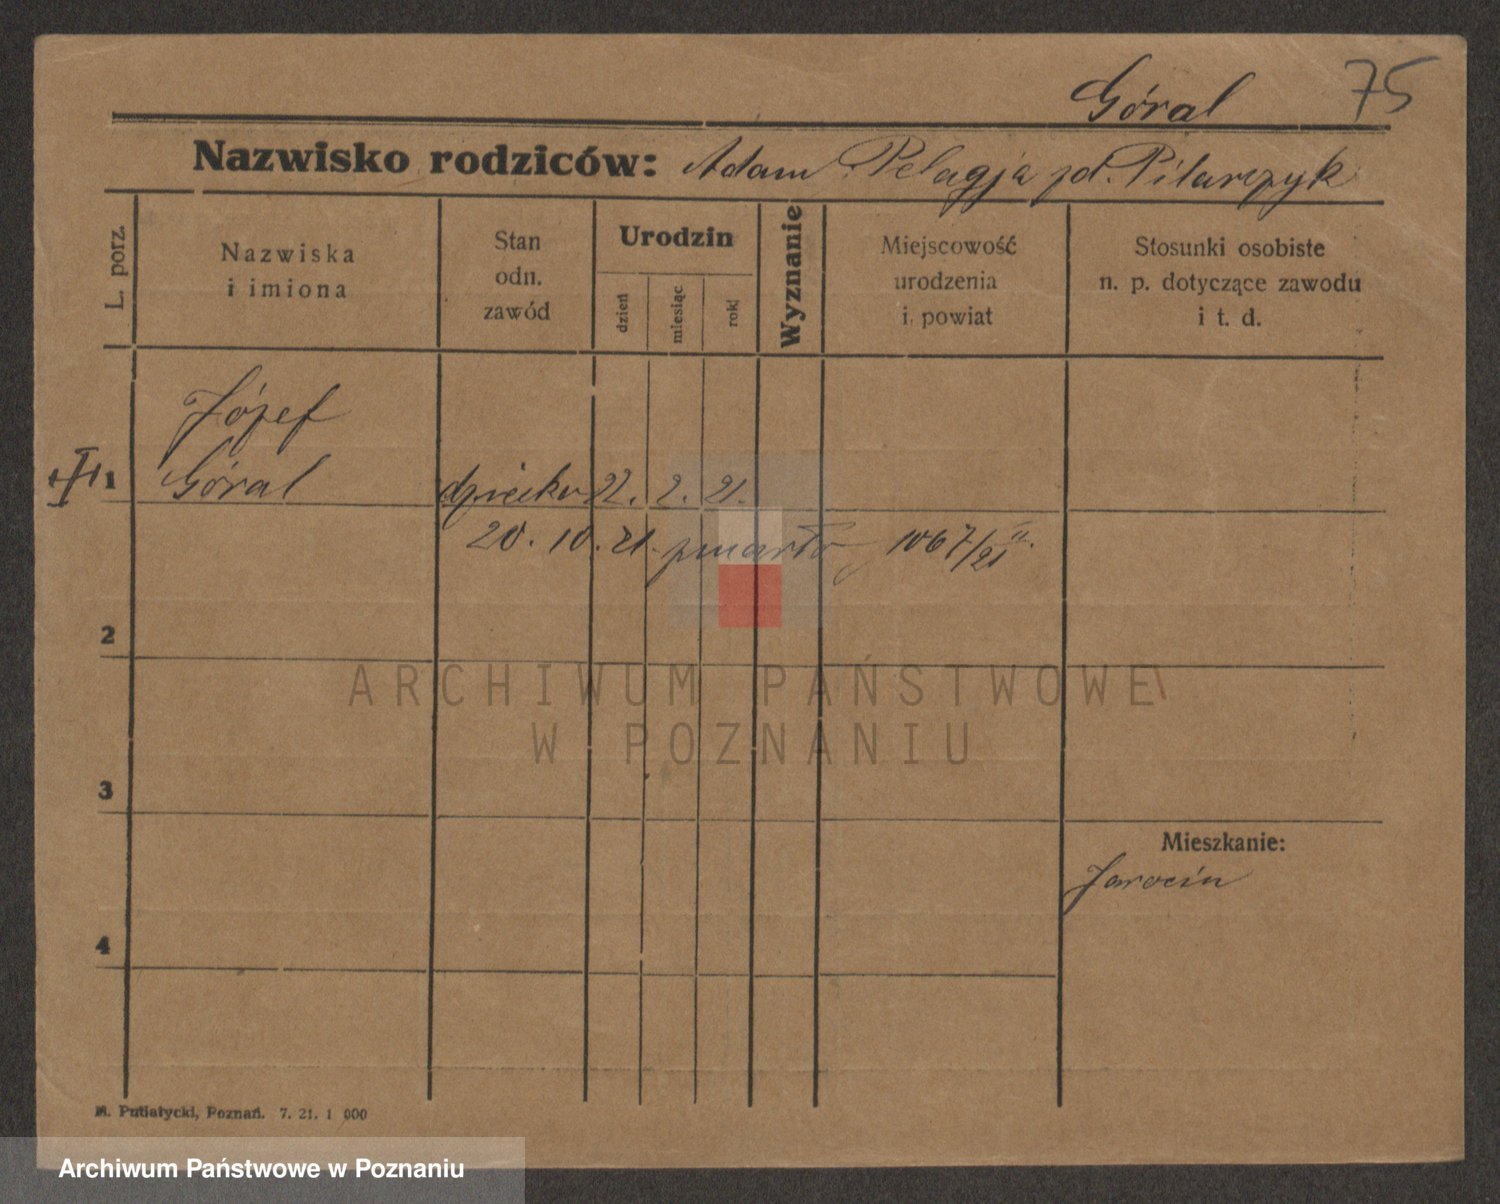 Góral 75
Nazwisko rodziców: Adam Pelagja zd. Pilarczyk
L. porz.
Nazwiska
i imiona
Stan
odn.
zawód
Urodzin
dzień
miesiąc
rok
Wyznanie
Miejscowość
urodzenia
i powiat
Stosunki osobiste
n. p. dotyczące zawodu
i t. d.
Józef
1 Góral dziecko 22. 2. 21.
20. 10. 21. zmarło 1067/21 II.
2
ARCHIWUM PAŃSTWOWE
W POZNANIU
3
Mieszkanie:
Jarocin
4
M. Putiatycki, Poznań. 7. 21. 1 000
Archiwum Państwowe w Poznaniu